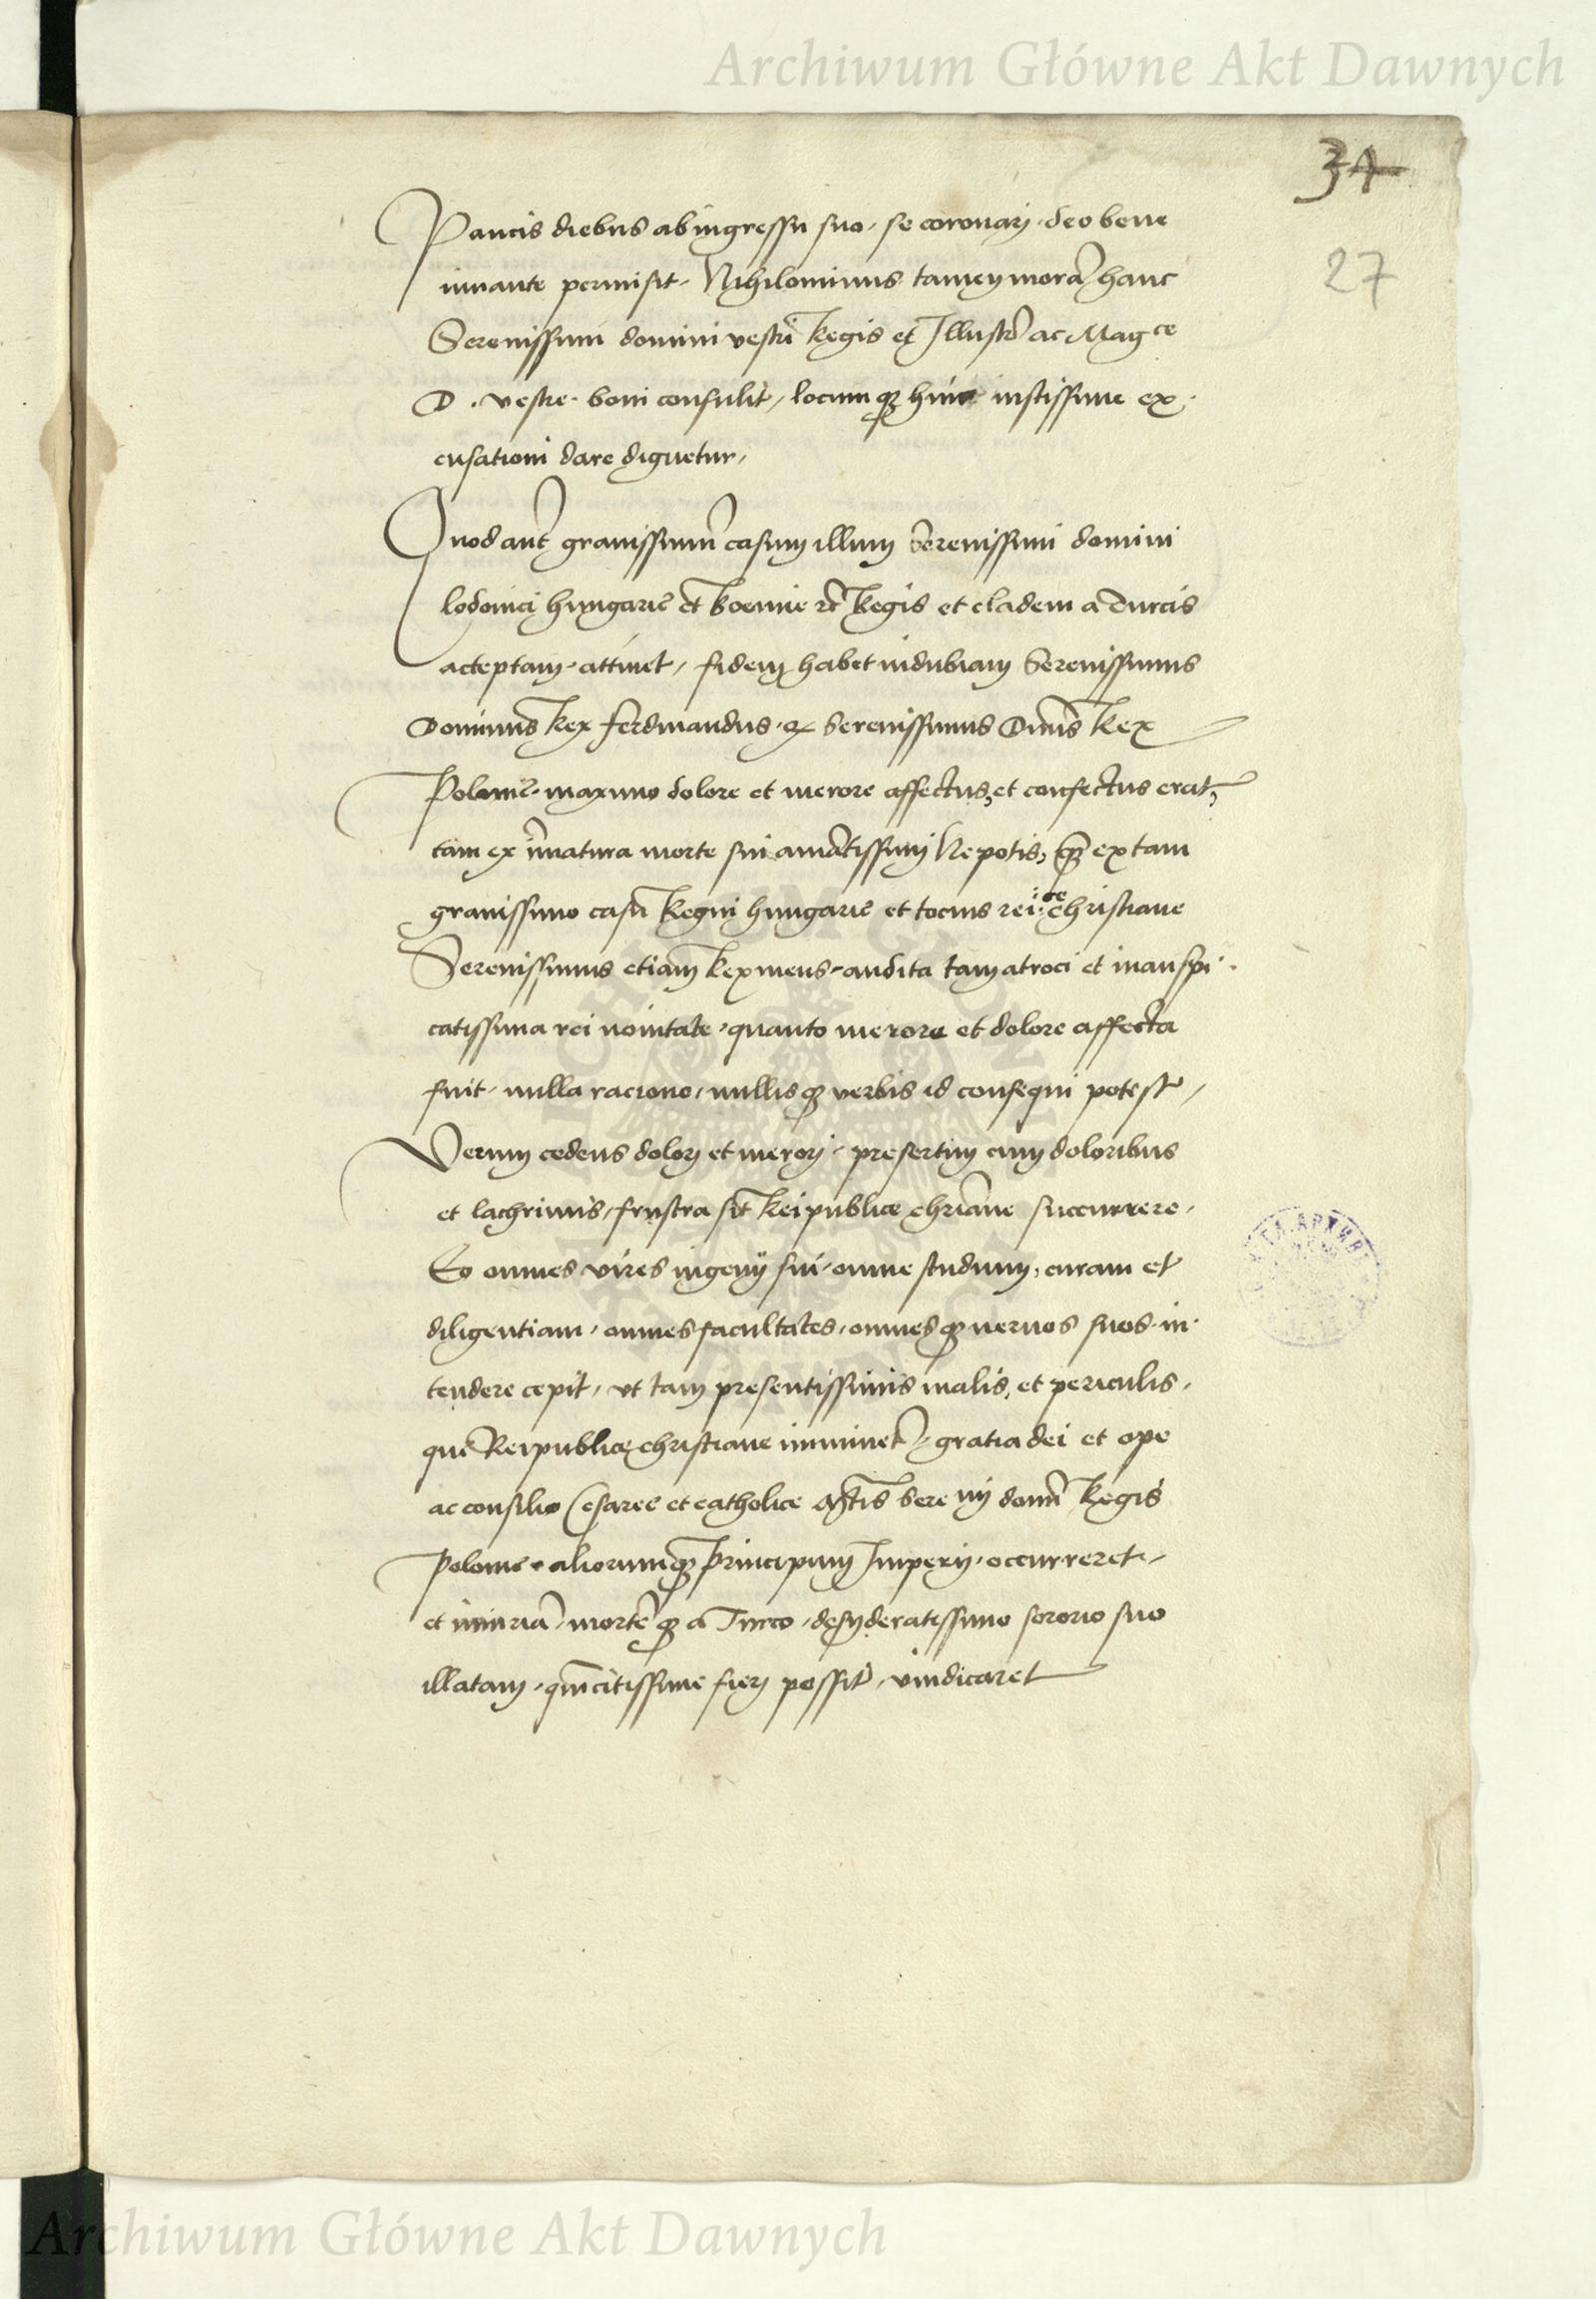 Archiwum Główne Akt Dawnych
34
27
Paucis diebus ab ingressu suo, se coronarj, deo bene
iuuante permisit, Nihilominus tamen morā hanc
Serenissimi domini vestri Regis et Illustr ac Mag ce
D. vestre. boni consulit, locumqꝫ huic iustissime ex
cusationi dare dignetur,
Quod aut grauissimū casum illum Serenissimi domini
lodouici hungarie et boemie rc Regis et cladem a Turcis
acceptam, attinet, fidem habet indubiam Serenissimus
Dominus Rex ferdinandus, qꝫ Serenissimus Dnus Rex
Polonie, maximo dolore et merore affectus, et confectus erat,
tam ex īmatura morte sui amātissimj Nepotis, qꝫ ex tam
grauissimo casu Regni hungarie et tocius rei: ce christiane
Serenissimus etiam Rex meus, audita tam atroci et inauspi
catissima rei nouitate, quanto merore et dolore affecta
fuit, nulla racione, nullisqꝫ verbis id consequi potest,
Verum cedens dolorj et merorj, presertim cum doloribus
et lachrimis, frustra sit Reipublice chriane succurrere,
Eo omnes vires ingenij sui, omne studium, curam et
diligentiam, omnes facultates, omnesqꝫ neruos suos in
tendere cepit, vt tam presentissimis malis, et periculis,
que Reipublice christiane imminet, gratia dei et ope
ac consilio Cesaree et catholice Mtis Sere mj domi Regis
Polonie, aliorumqꝫ principum Imperij, occurreret,
et iniuriā, mortēqꝫ a Turco, desyderatissimo sororio suo
illatam, qm citissime fierj possit, vindicaret
Archiwum Główne Akt Dawnych